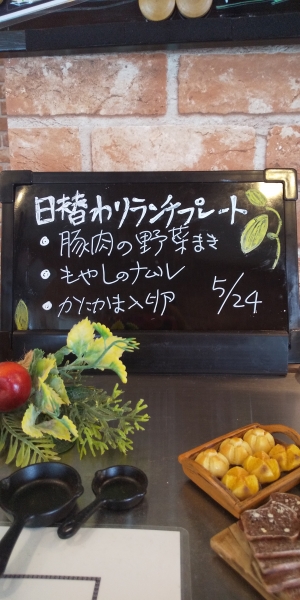 日替わりランチプレート
• 豚肉の野菜まき
• もやしのナムル
• かたかま入り卵
5/24